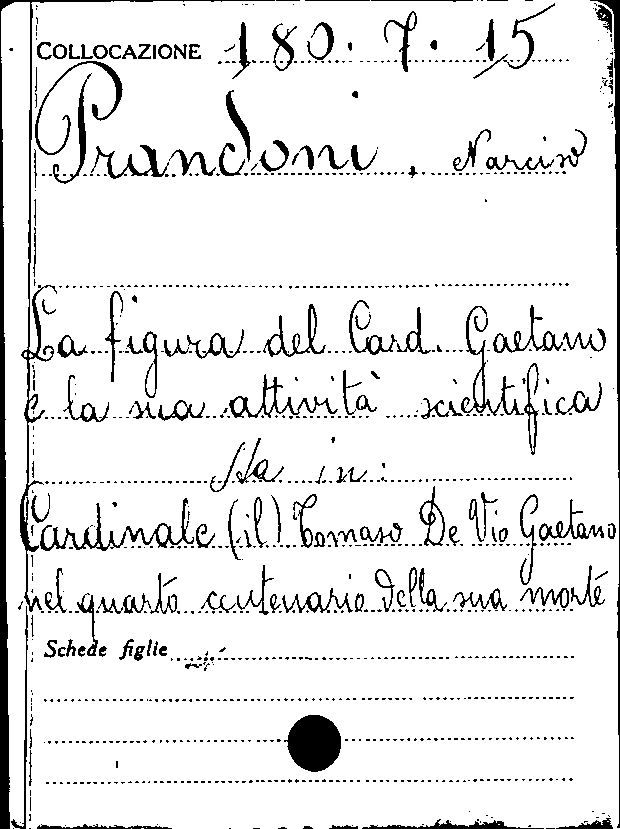 COLLOCAZIONE 180. 7. 15
Prandoni, Narciso
La figura del Card. Gaetano
e la sua attività scientifica
Sta in:
Cardinale (il) Tomaso De Vio Gaetano
nel quarto centenario della sua morte
Schede figlie